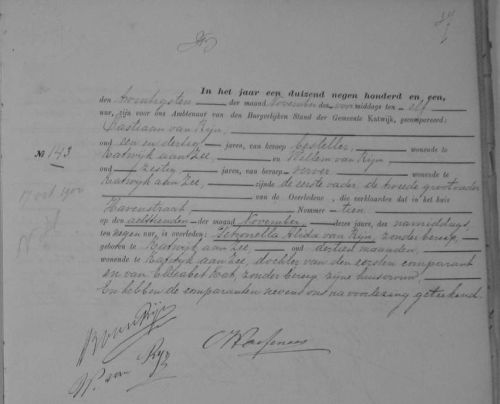 In het jaar een duizend negen honderd en een,
den twintigsten der maand November des voormiddags ten elf
ure, zijn voor ons Ambtenaar van den Burgerlijken Stand der Gemeente Katwijk, gecompareerd:
Bastiaan van Rijn,
oud een en dertig jaren, van beroep besteller, wonende te
Katwijk aan Zee, en Willem van Rijn
No 143
oud zestig jaren, van beroep verver, wonende te
Katwijk aan Zee, zijnde de eerste vader, de tweede grootvader
van de Overledene, die verklaarden dat in het huis
Havenstraat Nommer tien
op den achttienden der maand November dezes jaars, des namiddags
ten negen ure, is overleden: Petronella Alida van Rijn, zonder beroep,
geboren te Katwijk aan Zee, oud dertien maanden,
wonende te Katwijk aan Zee, dochter van den eersten comparant
en van Elizabeth Kat, zonder beroep, zijne huisvrouw.
En hebben de comparanten nevens ons na voorlezing geteekend.
B van Rijn
W. van Rijn